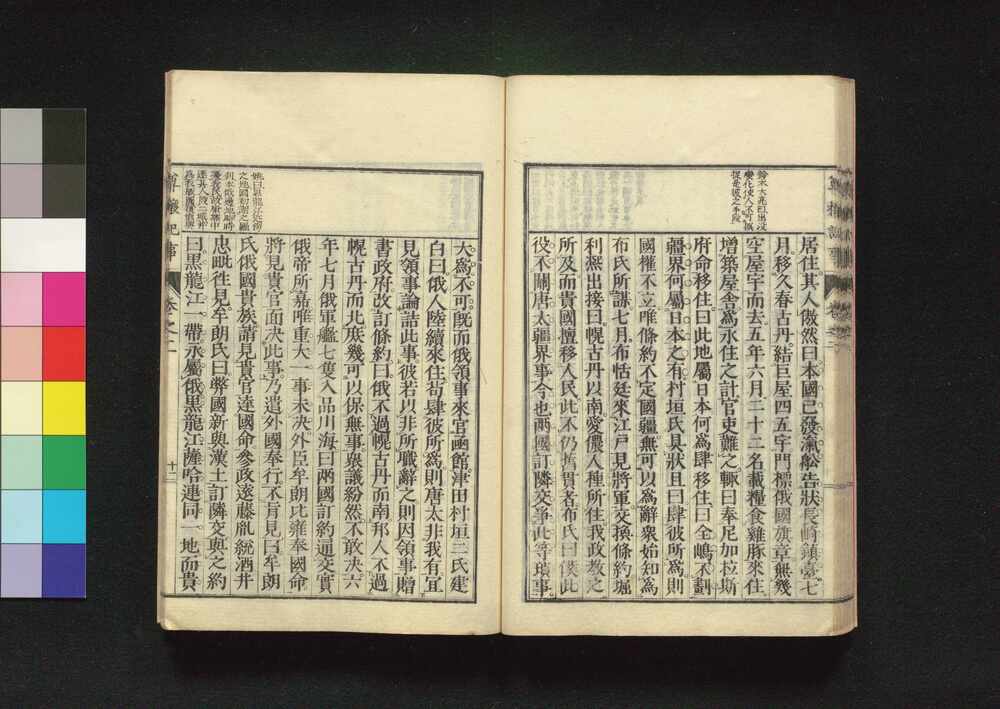 居住其人傲然曰本國已發滊舩告狀長崎鎭臺七
月移久春古丹結巨屋四五字門標俄國旗章無幾
空屋宇而去五年六月二十二名載糧食雞豚來住
增築屋舍爲永住之計官吏難之輙曰奉尼加拉斯
府命移住曰此地屬日本何爲肆移住曰全嶋不劃
疆界何屬日本之有村垣氏具狀且曰肆彼所爲則
國權不立唯條約不定國疆無可以爲辭衆始知爲
布氏所謀七月布恬廷來江戸見將軍交換條約堀
利凞出接曰幌古丹以南愛儂人種所住我政敎之
所及而貴國擅移人民此不仍舊貫者布氏曰僕此
役不關唐太疆界事今也兩國訂隣交爭此等瑣事
鈴木大兆曰出沒
變化使人不可摸
捉是彼之手段
大爲不可旣而俄領事來官函館津田村垣二氏建
白曰俄人陸續來住苟肆彼所爲則唐太非我有宜
見領事論詰此事彼若以非所職辭之則因領事贈
書政府改訂條約曰俄不過幌古丹而南邦人不過
幌古丹而北庶幾可以保無事衆議紛然不敢决六
年七月俄軍艦七隻入品川海曰兩國訂約通交實
俄帝所嘉唯重大一事未决外臣牟朗比雍奉國命
將見貴官面决此事乃遣外國奉行不肯見曰牟朗
氏俄國貴族請見貴官達國命參政遠藤胤統酒井
忠毗往見牟朗氏曰弊國新與漢土訂隣交與之約
曰黑龍江一帶永屬俄黑龍江薩哈連同一地而貴
卷之二
十二